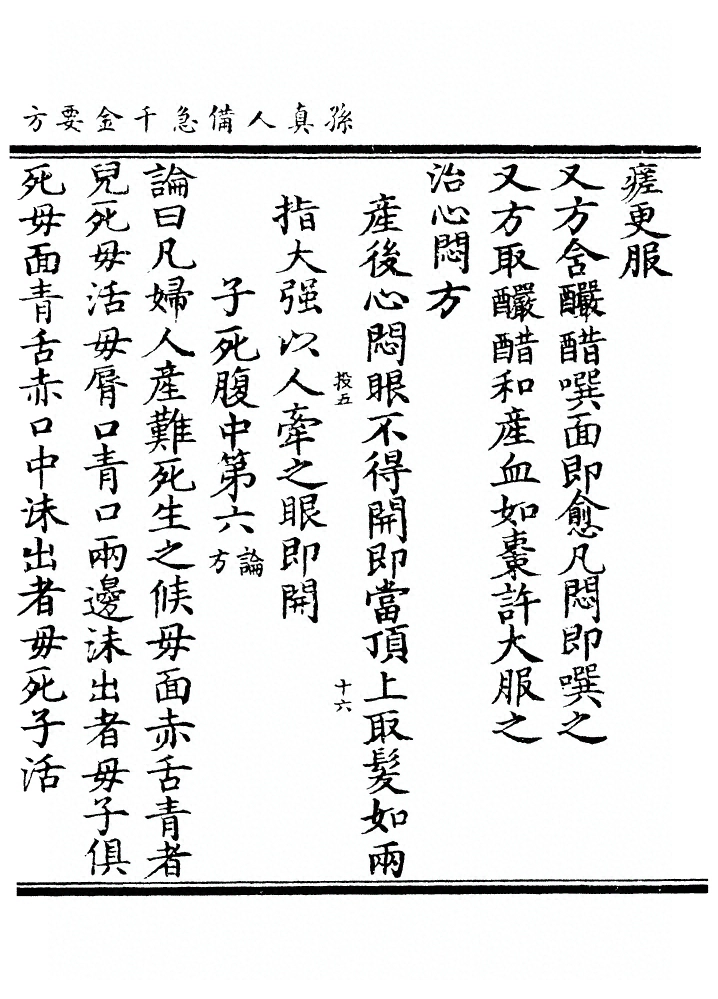 孫真人備急千金要方
瘥更服
又方含釅醋噀面即愈凡悶即噀之
又方取釅醋和產血如棗許大服之
治心悶方
產後心悶眼不得開即當頂上取髮如兩
投五
十六
指大强以人牽之眼即開
子死腹中第六論方
論曰凡婦人產難死生之候母面赤舌青者
兒死母活母脣口青口兩邊沫出者母子俱
死母面青舌赤口中沫出者母死子活